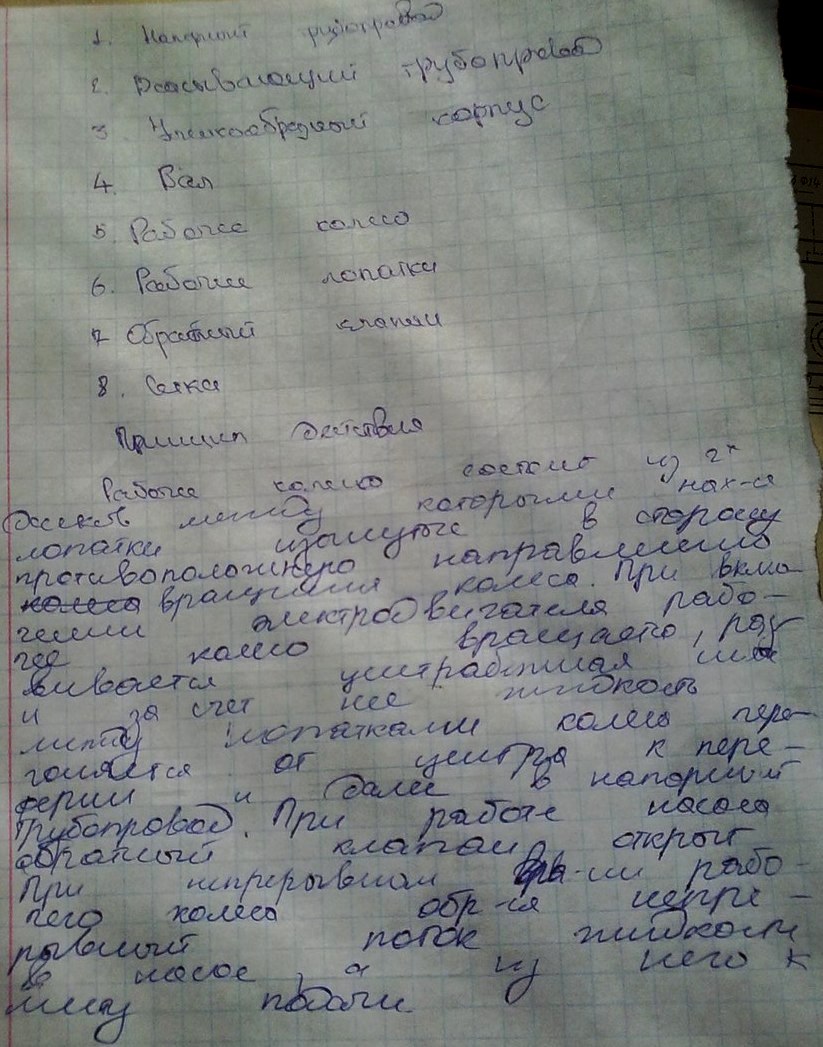 1. Напорный трубопровод
2. Всасывающий трубопровод
3 Улиткообразный корпус
4. Вал
5. Рабочее колесо
6. Рабочие лопатки
7 Обратный клапан
8. Сетка
Принцип действия
Рабочее колесо состоит из 2х
дисков между которыми нах-ся
лопатки изогнутые в сторону
противоположную направлению
колеса вращения колеса. При вклю-
чении электродвигателя рабо-
чее колесо вращается, раз
вивается центробежная сила
и за счет нее жидкость
между лопатками колеса пере-
гоняется от центра к пере-
ферии и далее в напорный
трубопровод. При работе насоса
обратный клапан открыт
При непрерывном вра-ии рабо-
чего колеса обр-ся непре-
рывный поток жидкости
в насос, а из него к
месту подачи